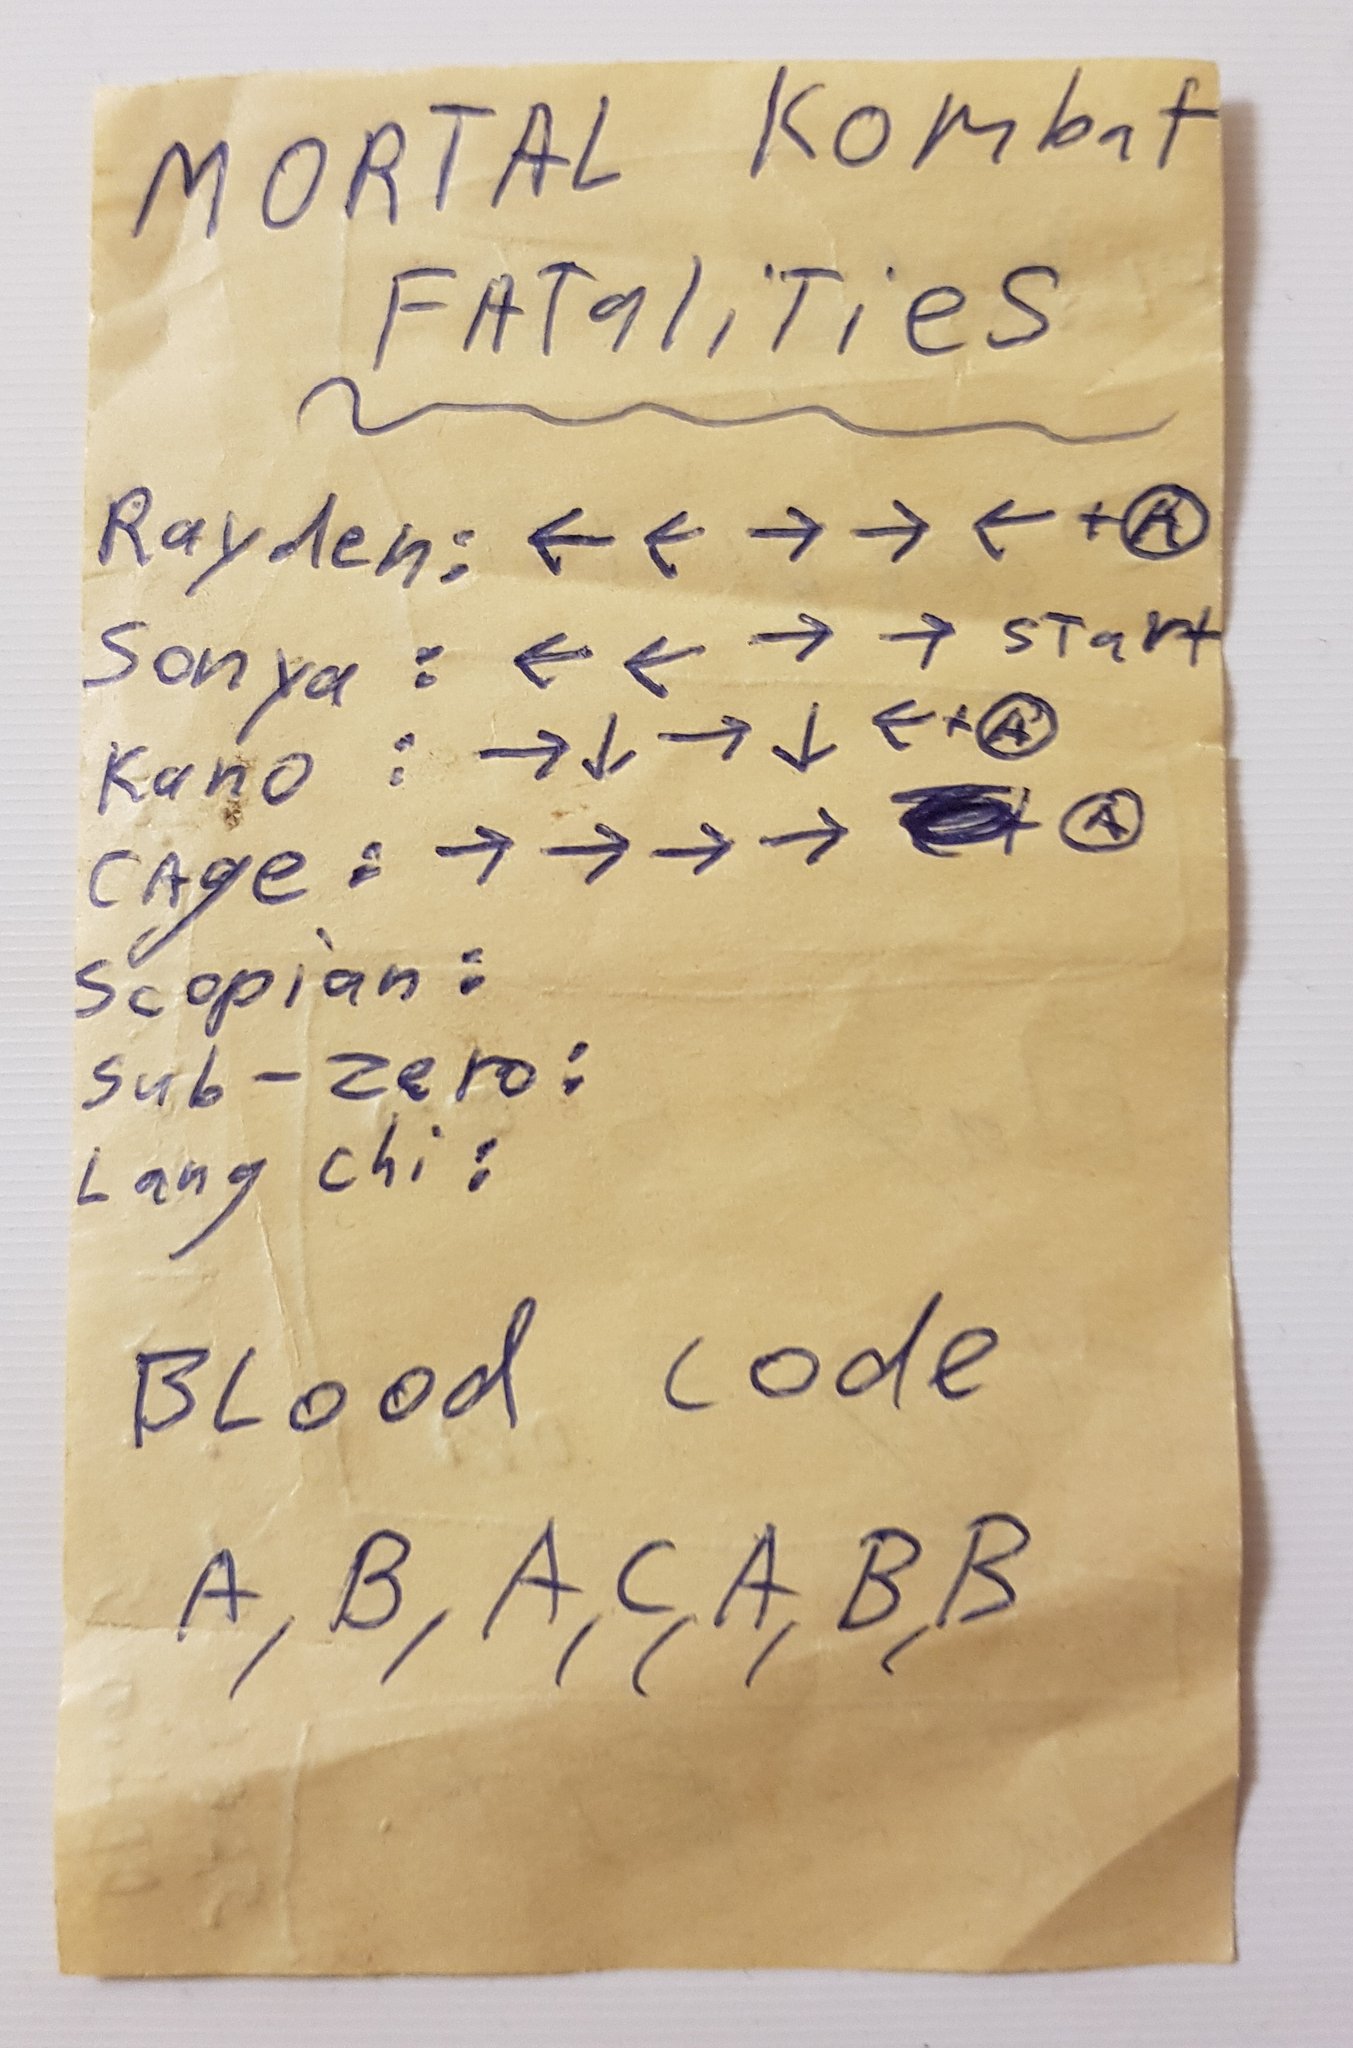 MORTAL Kombat
FATaliTies
Rayden: ← ← → → ← + Ⓐ
Sonya : ← ← → → STart
Kano : → ↓ → ↓ ← + Ⓐ
CAge : → → → → + Ⓐ
Scopian :
Sub-zero:
Lang chi :
BLood code
A, B, A, C, A, B, B